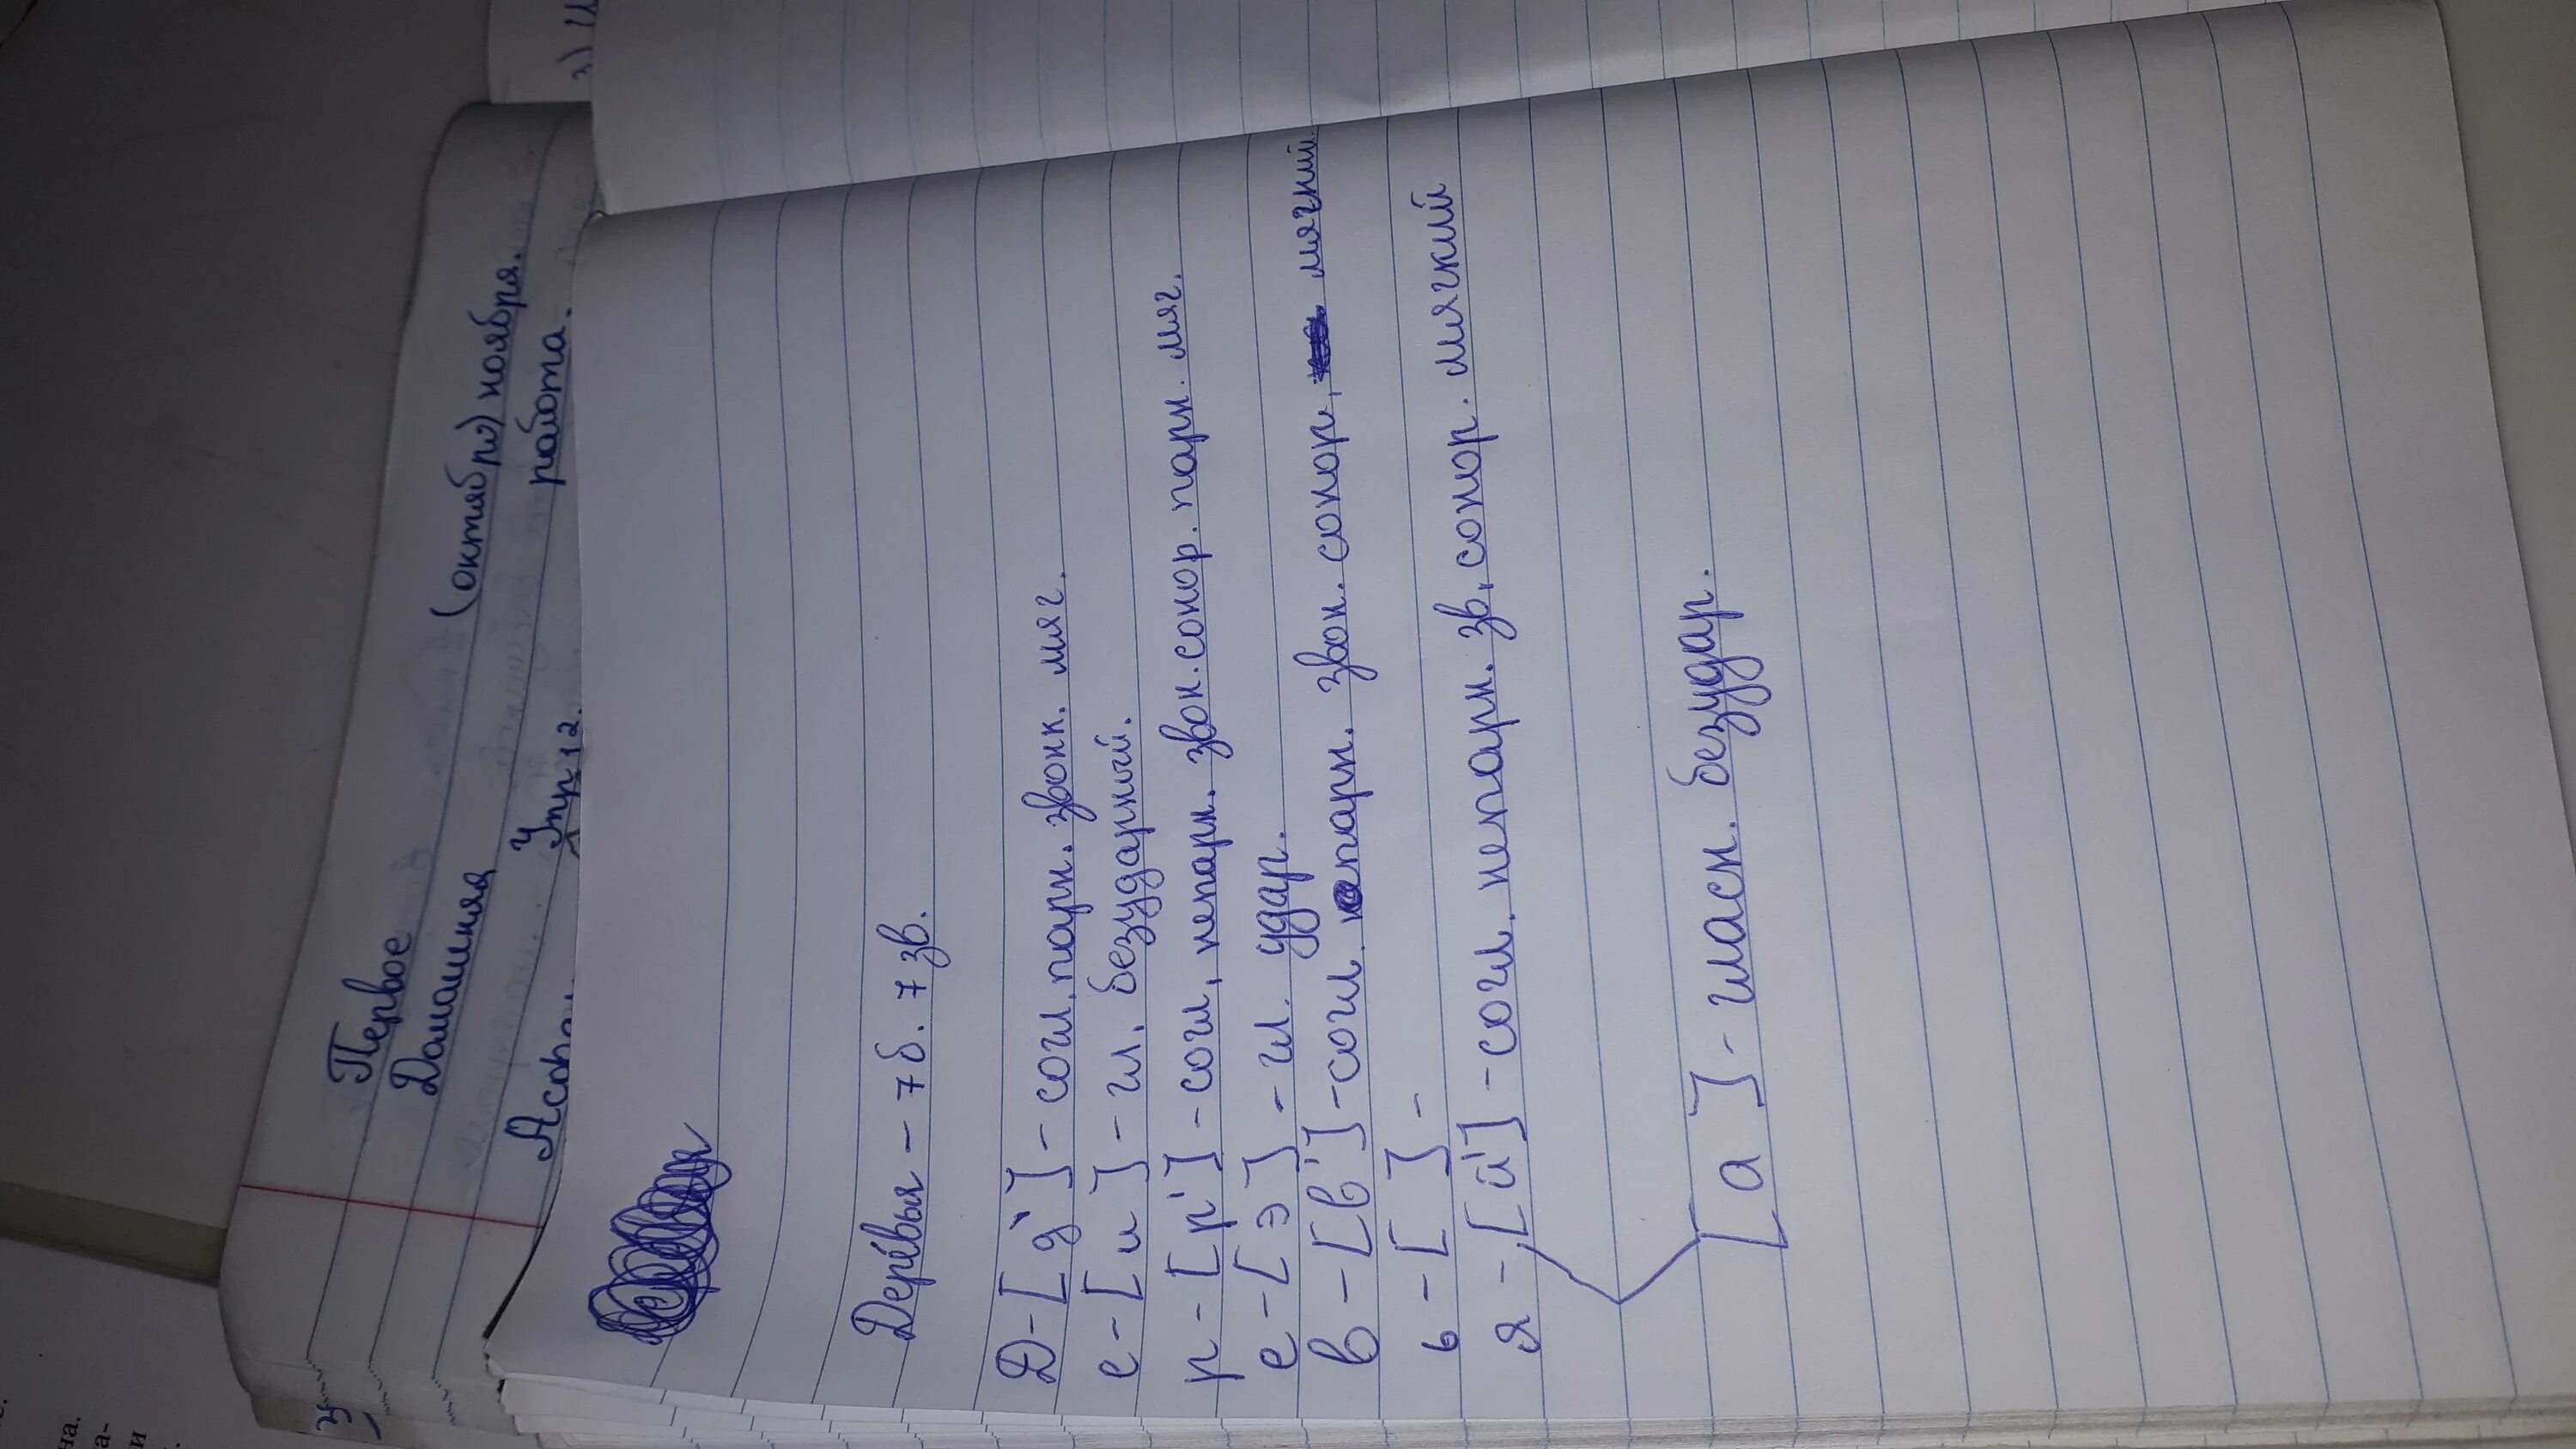 Первое (октябрь) ноября.
Домашняя работа.
Упр 12.
Дере́вья – 7б. 7 зв.
Д – [д'] – согл. парн. звонк. мяг.
е – [и] – гл. безударный.
р – [р'] – согл, непарн. звон. сонор. парн. мяг.
е – [э] – гл. удар.
в – [в'] – согл. непарн. звон. сонор, мягкий
ь – [ ] –
я – [й'] – согл. непарн. зв, сонор. мягкий
[а] – гласн. безудар.
3)
на.
а-
и